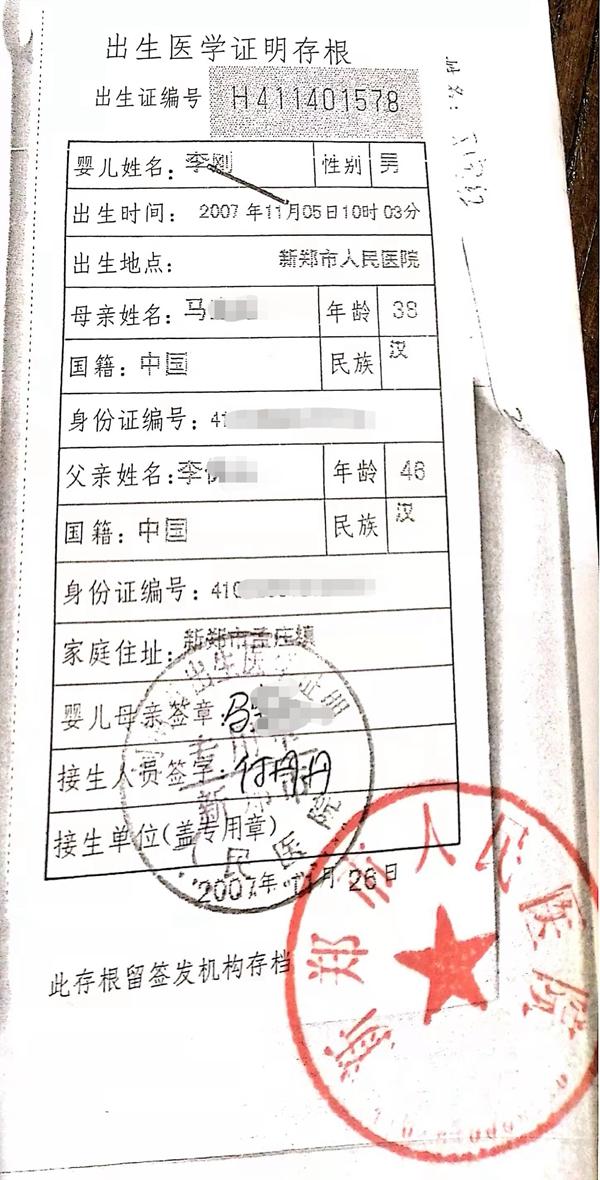 出生医学证明存根
出生证编号 H411401578
婴儿姓名: 李刚 性别 男
出生时间: 2007年11月05日10时03分
出生地点: 新郑市人民医院
母亲姓名: 马 年龄 38
国籍: 中国 民族 汉
身份证编号: 41
父亲姓名: 李 年龄 46
国籍: 中国 民族 汉
身份证编号: 410
家庭住址: 新郑市孟庄镇
婴儿母亲签章: 马
接生人员签字: 付丹丹
接生单位(盖专用章)
2007年11月26日
此存根留签发机构存档
新郑市人民医院